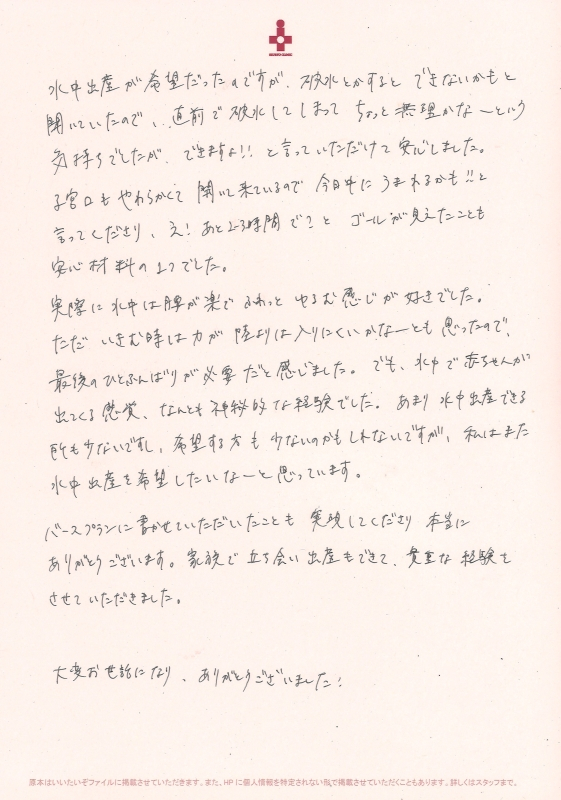 水中出産が希望だったのですが、破水とかすると できないかもと
聞いていたので、直前で破水してしまって ちょっと無理かなーという
気持ちでしたが、できますよ!! と言っていただけて安心しました。
子宮口も やわらかくて 開いて来ているので 今日中に うまれるかも!!と
言ってくださり、え! あと2~3時間で?と ゴールが見えたことも
安心材料の1つでした。
実際に水中は腰が楽で ふわっと ゆるむ感じが好きでした。
ただ いきむ時は力が 陸よりは入りにくいかなーとも思ったので、
最後のひとふんばりが必要だと感じました。でも、水中で赤ちゃんが
出てくる感覚、なんとも神秘的な経験でした。あまり水中出産できる
所も少ないですし、希望する方も少ないのかもしれないですが、私はまた
水中出産を希望したいなーと思っています。
バースプランに書かせていただいたことも 実現してくださり 本当に
ありがとうございます。家族で 立ち会い出産もできて、貴重な経験を
させていただきました。
大変お世話になり、ありがとうございました!
原本はいいたいぞファイルに掲載させていただきます。また、HPに個人情報を特定されない形で掲載させていただくこともあります。詳しくはスタッフまで。